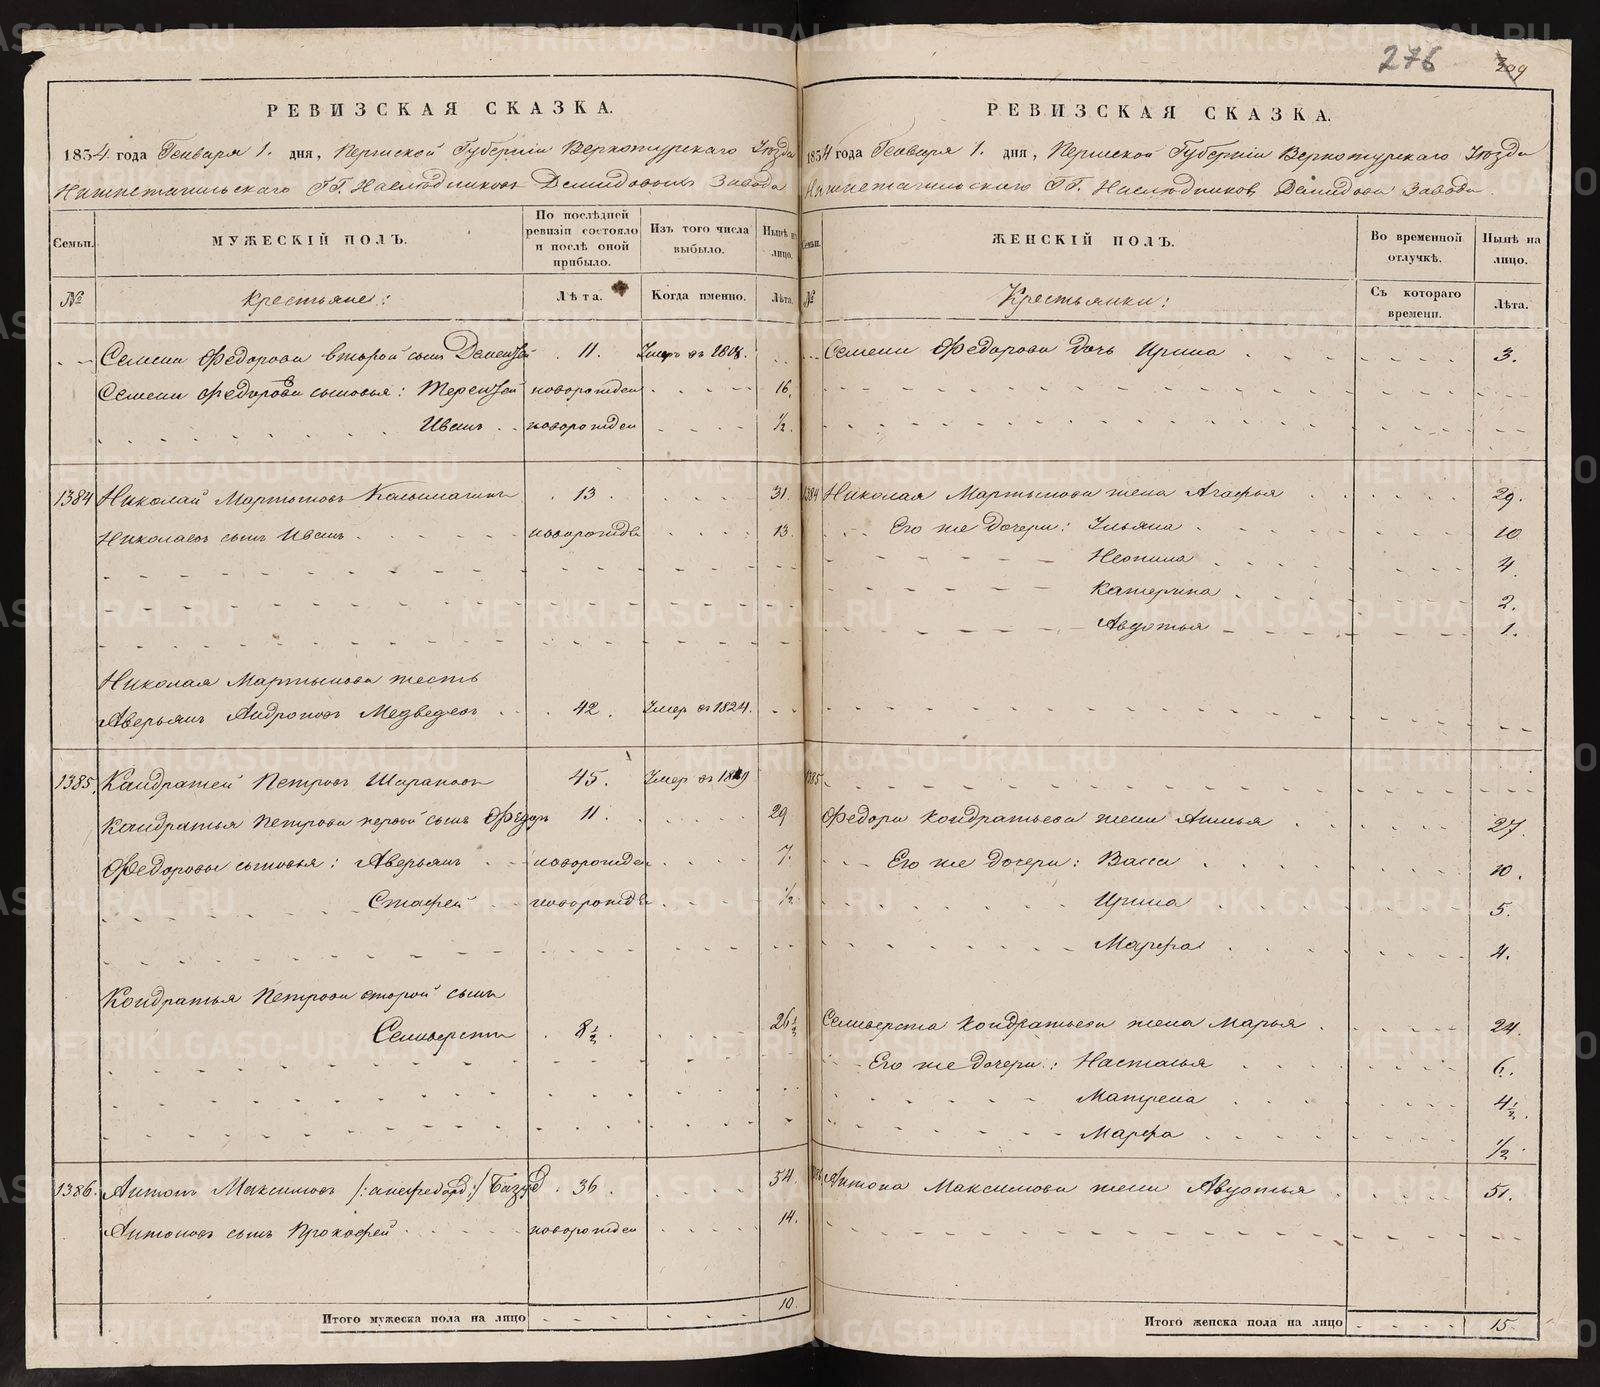 276 309
РЕВИЗСКАЯ СКАЗКА.
1834 года Генваря 1. дня, Пермской Губернiи Верхотурскаго Уѣзда
Нижнетагильскаго ГГ. Наслѣдниковъ Демидовыхъ Завода
Семьи. МУЖЕСКIЙ ПОЛЪ. По послѣдней ревизiи состояло и послѣ оной прибыло. Изъ того числа выбыло. Нынѣ на лицо.
№ Крестьяне: Лѣта. Когда именно. Лѣта.
Семена Федорова второй сынъ Дементей 11. Умеръ въ
Семена Федорова сыновья: Терентей новорожден 16.
Иванъ новорожден ½.
1384 Николай Мартыновъ 13 31.
Николаевъ сынъ Иванъ новорожде 13.
Николая Мартынова тесть
Аверьянъ Андроновъ Медведевъ 42. Умер въ 1824.
1385. Кондратей Петровъ Шарапов 45. Умер въ
Кондратья Петрова первой сынъ Федоръ 11. 29
Федоровы сыновья: Аверьянъ новорожден 7.
Стафей новорожде ½
Кондратья Петрова второй сынъ
Селиверстъ 8½. 26½
1386. Антонъ Максимовъ 36. 54.
Антоновъ сынъ Прокофей новорожден 14.
Итого мужеска пола на лицо 10.
РЕВИЗСКАЯ СКАЗКА.
1834 года Генваря 1. дня, Пермской Губернiи Верхотурскаго Уѣзда
Нижнетагильскаго ГГ. Наслѣдников Демидовых Завода.
Семьи. ЖЕНСКIЙ ПОЛЪ. Во временной отлучкѣ. Нынѣ на лицо.
№ Крестьянки: Съ котораго времени. Лѣта.
Семена Федорова дочь Ирина 3.
1384 Николая Мартынова жена Агафья 29.
Его же дочери: Ульяна 10
Неонила 4
Катерина 2.
Авдотья 1.
1385
Федора Кондратьева жена Анисья 27.
Его же дочери: Васса 10.
Ирина 5.
Марфа 4.
Селиверста Кондратьева жена Марья 24.
Его же дочери: Настасья 6.
Матрена 4½.
Марфа ½
Антона Максимова жена Авдотья 51.
Итого женска пола на лицо 15.
METRIKI.GASO-URAL.RU